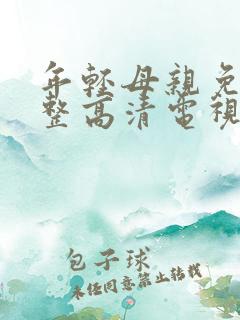 年輕母親免
整高清電視
包子球
未经同意禁止转载